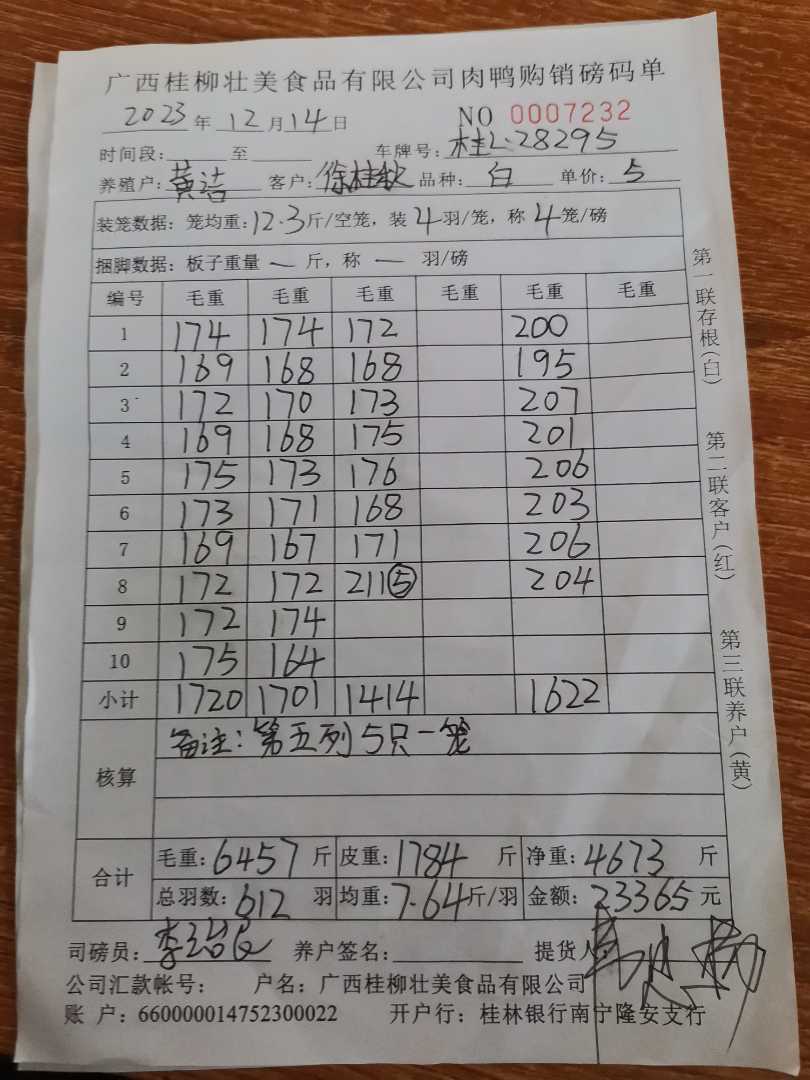 广西桂柳壮美食品有限公司肉鸭购销磅码单
2023年12月14日 NO 0007232
时间段: 至 车牌号: 桂L·28295
养殖户: 黄洁 客户: 徐桂钦 品种: 白 单价: 5
装笼数据: 笼均重: 12.3斤/空笼, 装4羽/笼, 称4笼/磅
捆脚数据: 板子重量 — 斤, 称 — 羽/磅
编号 毛重 毛重 毛重 毛重 毛重 毛重
1 174 174 172 200
2 169 168 168 195
3 172 170 173 207
4 169 168 175 201
5 175 173 176 206
6 173 171 168 203
7 169 167 171 206
8 172 172 211⑤ 204
9 172 174
10 175 164
小计 1720 1701 1414 1622
核算 备注: 第五列5只一笼
合计 毛重: 6457斤 皮重: 1784斤 净重: 4673斤
总羽数: 612羽 均重: 7.64斤/羽 金额: 23365元
司磅员: 养户签名: 提货人:
公司汇款帐号: 户名: 广西桂柳壮美食品有限公司
账 户: 660000014752300022 开户行: 桂林银行南宁隆安支行
第一联存根(白)
第二联客户(红)
第三联养户(黄)